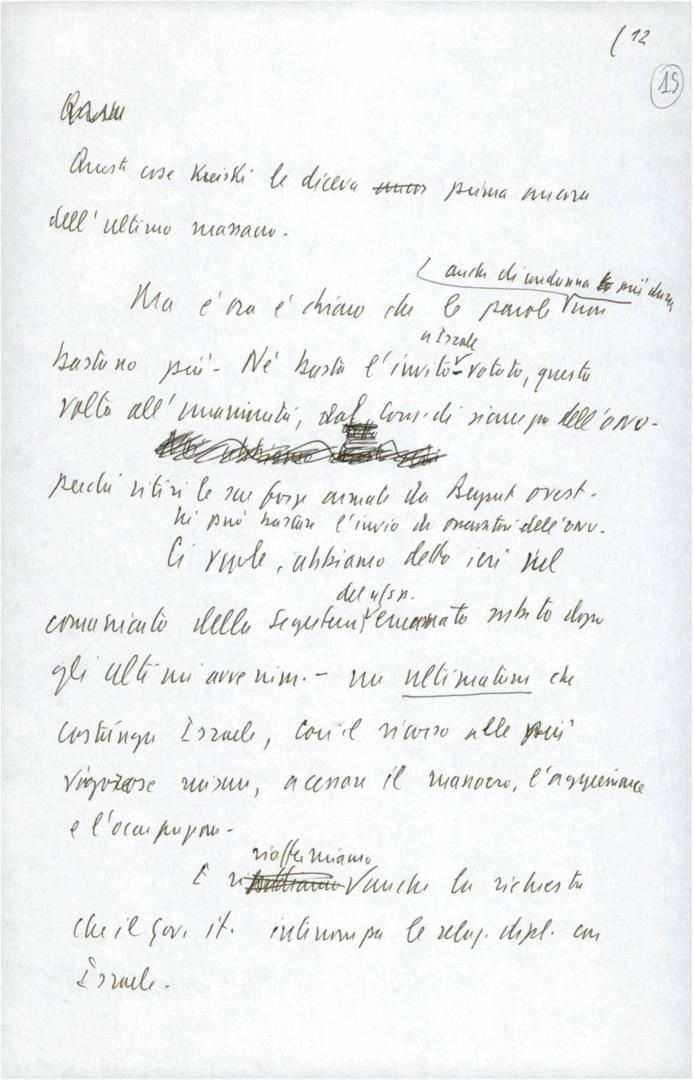 (12
15
Queste
Queste cose Kreiski le diceva ancor prima ancora
dell'ultimo massacro.
(anche di condanna la più dura
Ma è ora è chiaro che le parole non
a Israele
bastano più. Né basta l'invito votato, questa
volta all'unanimità, dal Cons. di sicurezza dell'ONU.
perché ritiri le sue forze armate da Beyrut ovest.
Né può bastare l'invio di osservatori dell'ONU.
Ci vuole, abbiamo detto ieri nel
del ns. p.
comunicato della Segreteria emanato subito dopo
gli ultimi avvenim. - un ultimatum che
costringa Israele, con il ricorso alle più
vigorose misure, a cessare il massacro, l'aggressione
e l'occupazion.
riaffermiamo
E anche la richiesta
che il gov. it. interrompa le relaz. dipl. con
Israele.